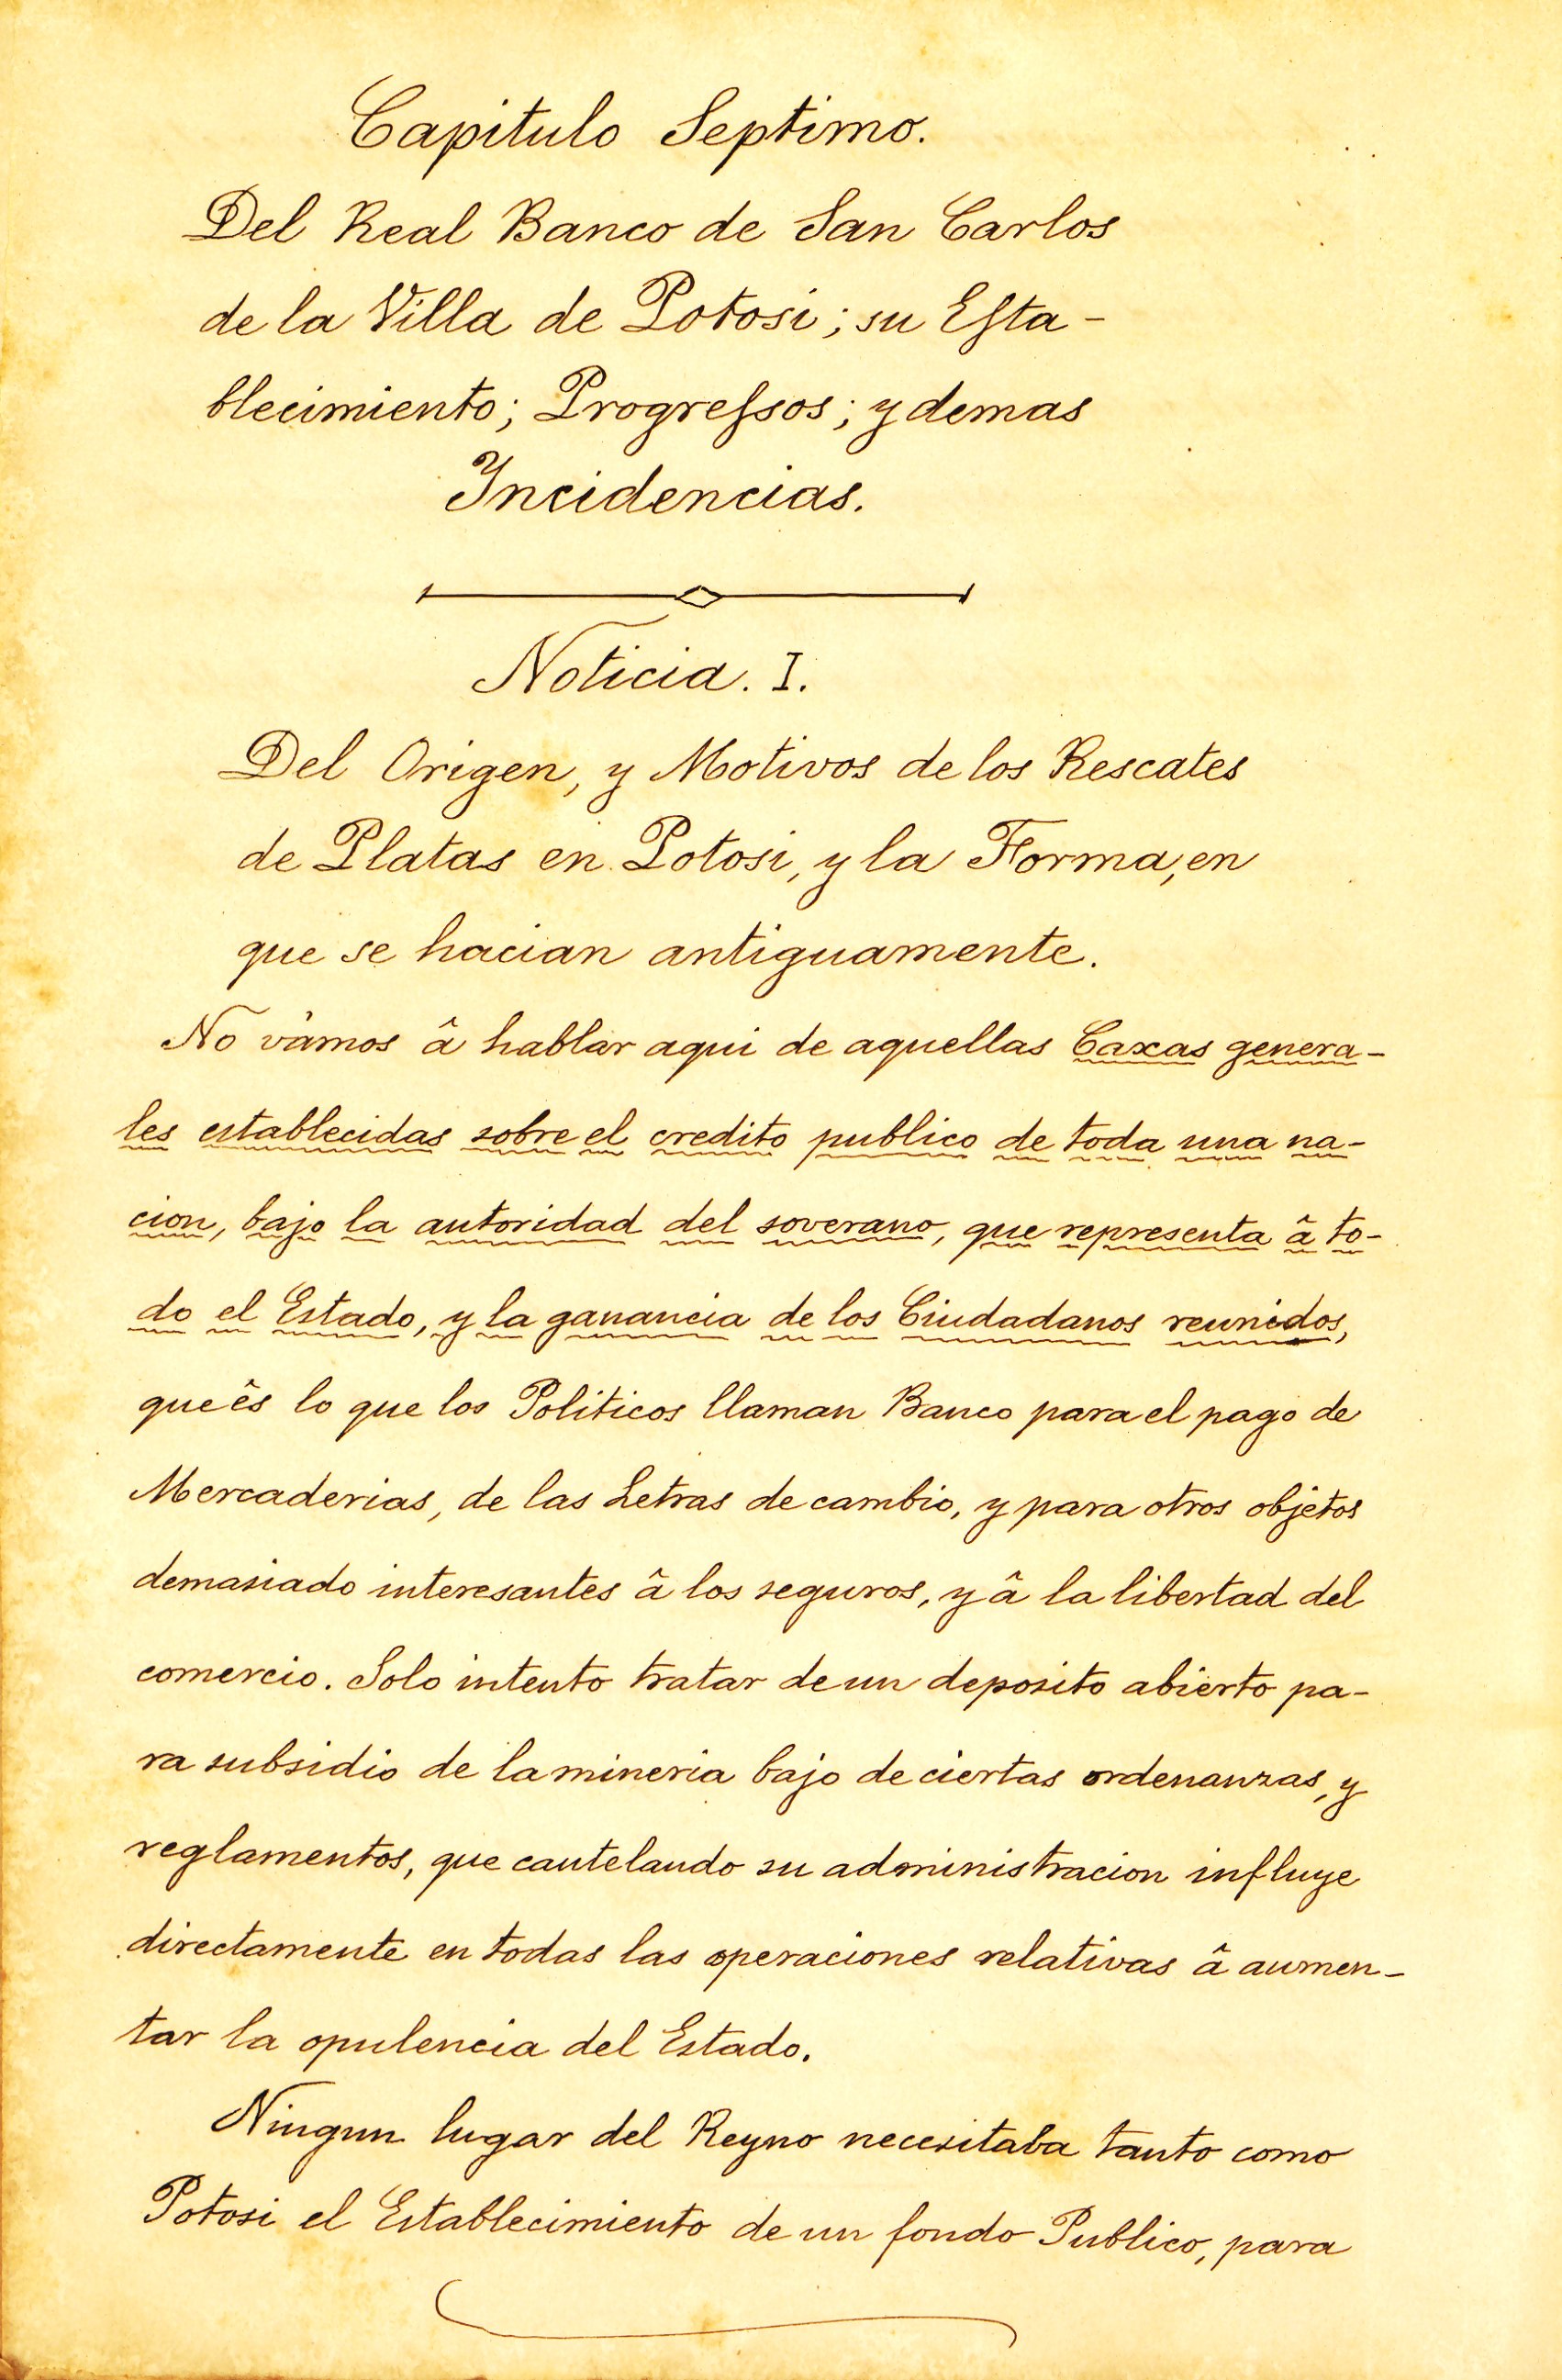 Capitulo Septimo.
Del Real Banco de San Carlos
de la Villa de Potosi; su Eſta-
blecimiento; Progreſsos; y demas
Incidencias.
Noticia. I.
Del Origen, y Motivos de los Rescates
de Platas en Potosi, y la Forma, en
que se hacian antiguamente.
No vàmos â hablar aqui de aquellas Caxas genera-
les establecidas sobre el credito publico de toda una na-
cion, bajo la autoridad del soverano, que representa â to-
do el Estado, y la ganancia de los Ciudadanos reunidos,
que ês lo que los Politicos llaman Banco para el pago de
Mercaderias, de las Letras de cambio, y para otros objetos
demasiado interesantes â los seguros, y â la libertad del
comercio. Solo intento tratar de un deposito abierto pa-
ra subsidio de la mineria bajo de ciertas ordenanzas, y
reglamentos, que cautelando su administracion influye
directamente en todas las operaciones relativas â aumen-
tar la opulencia del Estado.
Ningun lugar del Reyno necesitaba tanto como
Potosi el Establecimiento de un fondo Publico, para